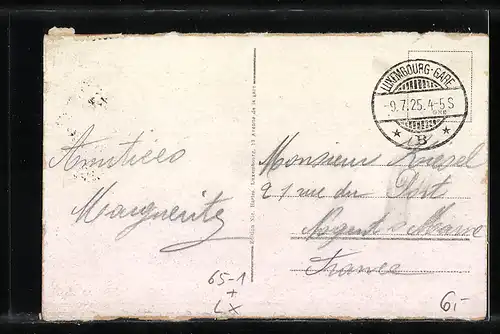 LUXEMBOURG-GARE
-9.7.25.4-5S
B
Amitiées
Marguerite
Monsieur Kresel
21 rue du Port
Nogent s/Marne
France
65-1
+
LX
6,-